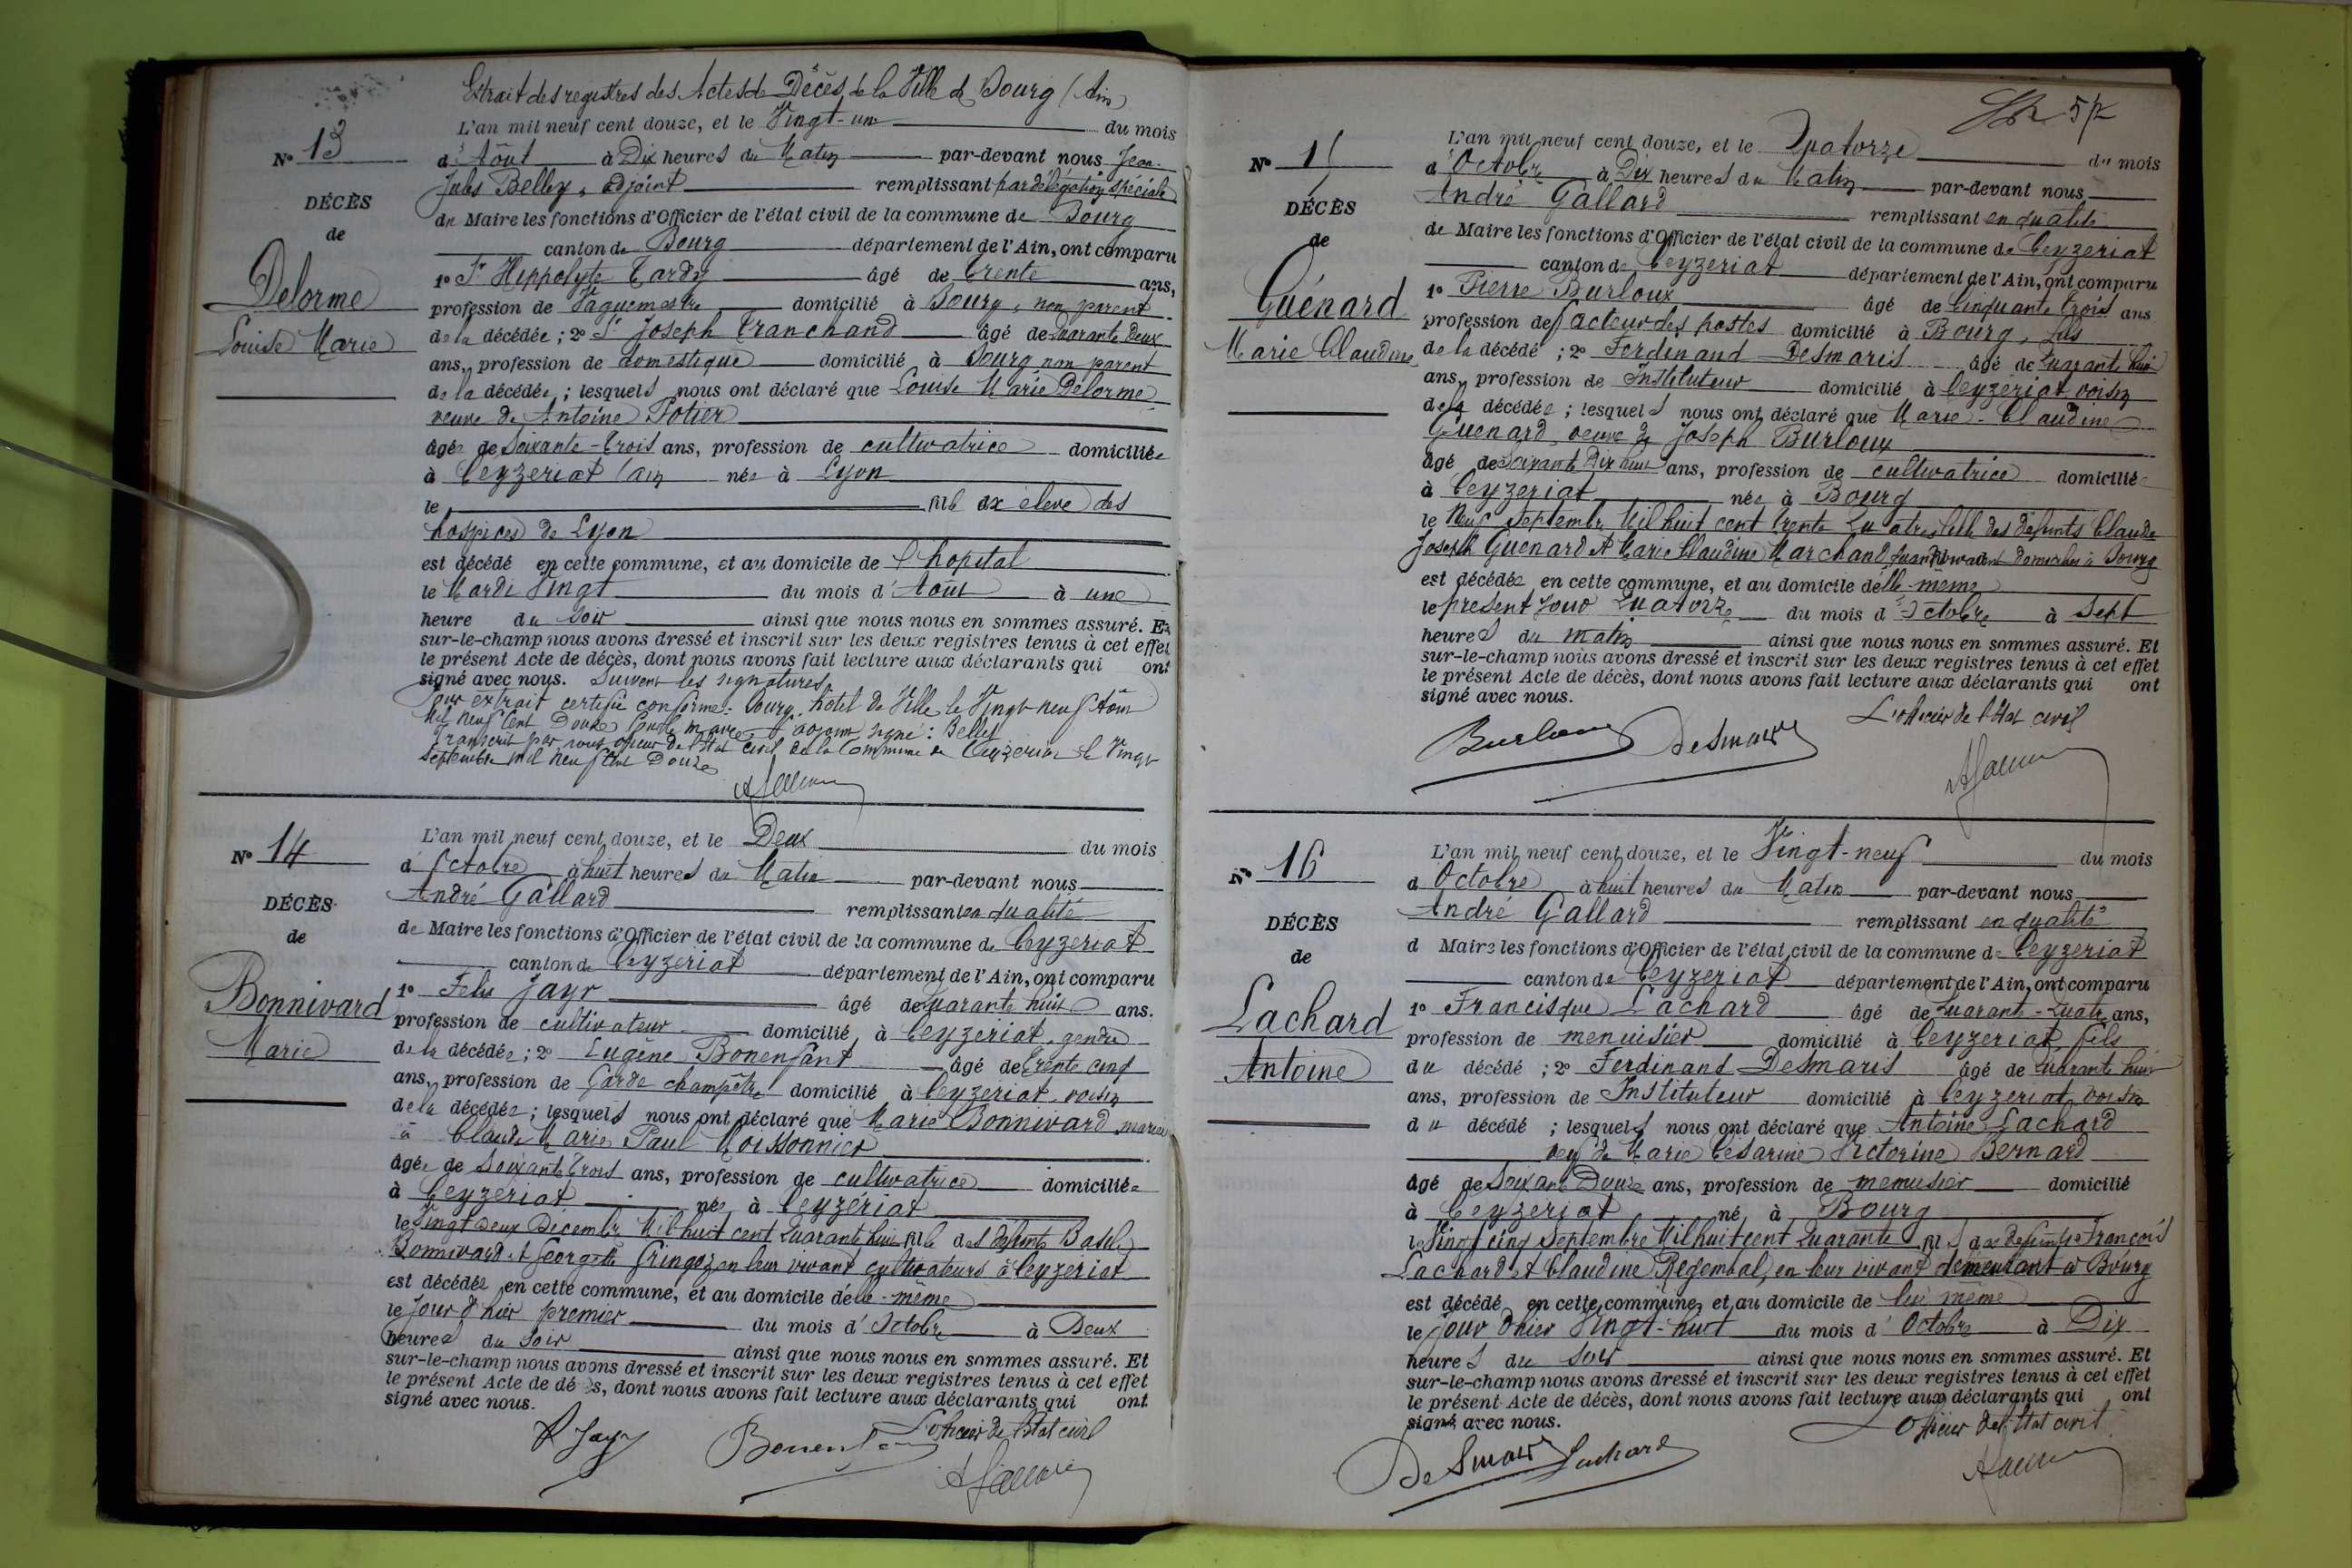 Extrait des registres des Actes de Décès de la Ville de Bourg (Ain)
N° 13
DÉCÈS
de
Delorme
Louise Marie
L'an mil neuf cent douze, et le Vingt-un du mois
d'Août à Dix heures du Matin par-devant nous Jean-
Jules Belley, adjoint remplissant par délégation spéciale
du Maire les fonctions d'Officier de l'état civil de la commune de Bourg
canton de Bourg département de l'Ain, ont comparu
1° Sr Hippolyte Tardy âgé de trente ans,
profession de Vaguemestre domicilié à Bourg, non parent
de la décédée ; 2° Sr Joseph Tranchand âgé de quarante deux
ans, profession de domestique domicilié à Bourg non parent
de la décédée ; lesquels nous ont déclaré que Louise Marie Delorme
veuve de Antoine Potier
âgée de Soixante-trois ans, profession de cultivatrice domiciliée
à Ceyzeriat (ain née à Lyon
le fille ex élève des
hospices de Lyon
est décédé en cette commune, et au domicile de l'hopital
le Mardi Vingt du mois d'Août à une
heure du soir ainsi que nous nous en sommes assuré. Et
sur-le-champ nous avons dressé et inscrit sur les deux registres tenus à cet effet
le présent Acte de décès, dont nous avons fait lecture aux déclarants qui ont
signé avec nous. Suivent les signatures.
Pour extrait certifié conforme. Bourg, hotel de Ville le Vingt neuf Août
Mil neuf Cent Douze Pour le maire l'adjoint signé : Belley
Transcrit par nous officier de l'Etat civil de la Commune de Ceyzeriat le Vingt
septembre mil neuf Cent Douze
N° 14
DÉCÈS
de
Bonnivard
Marie
L'an mil neuf cent douze, et le Deux du mois
d'Octobre à huit heures du Matin par-devant nous
André Gallard remplissant en qualité
de Maire les fonctions d'Officier de l'état civil de la commune de Ceyzeriat
canton de Ceyzeriat département de l'Ain, ont comparu
1° Felix Jayr âgé de quarante huit ans.
profession de cultivateur domicilié à Ceyzeriat, gendre
de la décédée ; 2° Eugène Bonenfant âgé de trente cinq
ans, profession de Garde champêtre domicilié à Ceyzeriat, voisin
de la décédée ; lesquels nous ont déclaré que Marie Bonnivard mariée
à Claude Marie Paul Moissonnier
âgée de Soixante trois ans, profession de cultivatrice domiciliée
à Ceyzériat née à Ceyzériat
le Vingt Deux Décembre Mil huit cent Quarante huit fille des défunts Basile
Bonnivard et Georgette Gringoz en leur vivant cultivateurs à Ceyzeriat
est décédée en cette commune, et au domicile d'elle-même
le jour d'hier premier du mois d'Octobre à Deux
heures du Soir ainsi que nous nous en sommes assuré. Et
sur-le-champ nous avons dressé et inscrit sur les deux registres tenus à cet effet
le présent Acte de décès, dont nous avons fait lecture aux déclarants qui ont
signé avec nous.
L'officier de l'Etat civil
F Jayr Bonenfant A Gallard
57
N° 15
DÉCÈS
de
Guénard
Marie Claudine
L'an mil neuf cent douze, et le Quatorze du mois
d'Octobre à Dix heures du Matin par-devant nous
André Gallard remplissant en qualité
de Maire les fonctions d'Officier de l'état civil de la commune de Ceyzeriat
canton de Ceyzeriat département de l'Ain, ont comparu
1° Pierre Burloux âgé de Cinquante trois ans
profession de facteur des postes domicilié à Bourg, fils
de la décédé ; 2° Ferdinand Desmaris âgé de quarante huit
ans, profession de Instituteur domicilié à Ceyzeriat voisin
de la décédée ; lesquels nous ont déclaré que Marie-Claudine
Guenard veuve de Joseph Burloux
âgé de Soixante Dix huit ans, profession de cultivatrice domiciliée
à Ceyzeriat née à Bourg
le Neuf Septembre Mil huit cent trente Quatre, fille des défunts Claude
Joseph Guenard et Marie Claudine Marchand, quand vivaient domiciliés à Bourg
est décédée en cette commune, et au domicile d'elle-même
le présent jour Quatorze du mois d'Octobre à Sept
heures du matin ainsi que nous nous en sommes assuré. Et
sur-le-champ nous avons dressé et inscrit sur les deux registres tenus à cet effet
le présent Acte de décès, dont nous avons fait lecture aux déclarants qui ont
signé avec nous.
L'officier de l'Etat civil
Burloux Desmaris
N° 16
DÉCÈS
de
Lachard
Antoine
L'an mil neuf cent douze, et le Vingt-neuf du mois
d Octobre à huit heures du Matin par-devant nous
André Gallard remplissant en qualité
d Maire les fonctions d'Officier de l'état civil de la commune de Ceyzeriat
canton de Ceyzeriat département de l'Ain, ont comparu
1° Francisque Lachard âgé de Quarante-Quatre ans,
profession de menuisier domicilié à Ceyzeriat, fils
du décédé ; 2° Ferdinand Desmaris âgé de Quarante huit
ans, profession de Instituteur domicilié à Ceyzeriat, voisin
du décédé ; lesquels nous ont déclaré que Antoine Lachard
veuf de Marie Césarine Victorine Bernard
âgé de Soixante Douze ans, profession de menuisier domicilié
à Ceyzériat né à Bourg
le Vingt cinq Septembre Mil huit cent Quarante fils des défunts François
Lachard et Claudine Regembal, en leur vivant demeurant à Bourg
est décédé en cette commune, et au domicile de lui même
le jour d'hier Vingt-huit du mois d'Octobre à Dix
heures du soir ainsi que nous nous en sommes assuré. Et
sur-le-champ nous avons dressé et inscrit sur les deux registres tenus à cet effet
le présent Acte de décès, dont nous avons fait lecture aux déclarants qui ont
signé avec nous.
L'officier de l'Etat civil
Desmaris Lachard